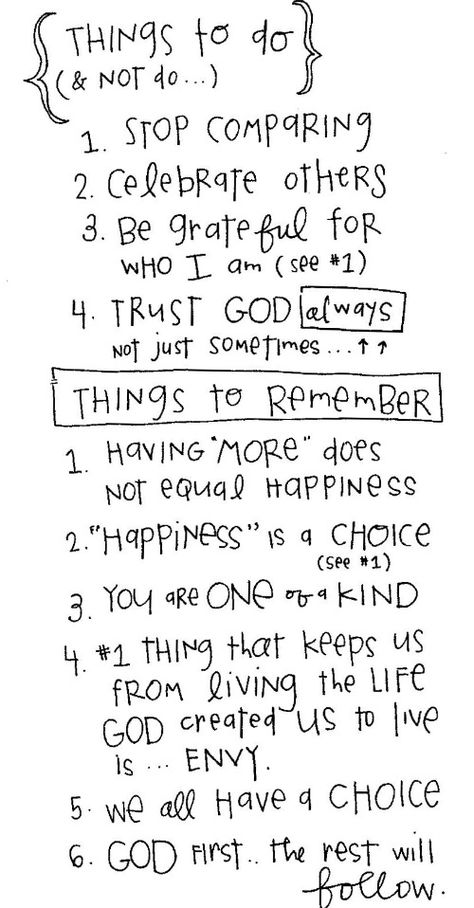 THINGS to do
(& NOT do...)
1. STOP COMPARING
2. Celebrate others
3. Be grateful for
WHO I am (see #1)
4. TRUST GOD always
NOT just sometimes...↑↑
THINGS to Remember
1. HAVING "MORE" does
NOT equal HAPPINESS
2. "HAPPINESS" is a CHOICE
(see #1)
3. YOU are ONE of a KIND
4. #1 THING that keeps us
FROM living the LIFE
GOD created us to live
is ... ENVY.
5. We all Have a CHOICE
6. GOD FIRST.. the rest will
follow.